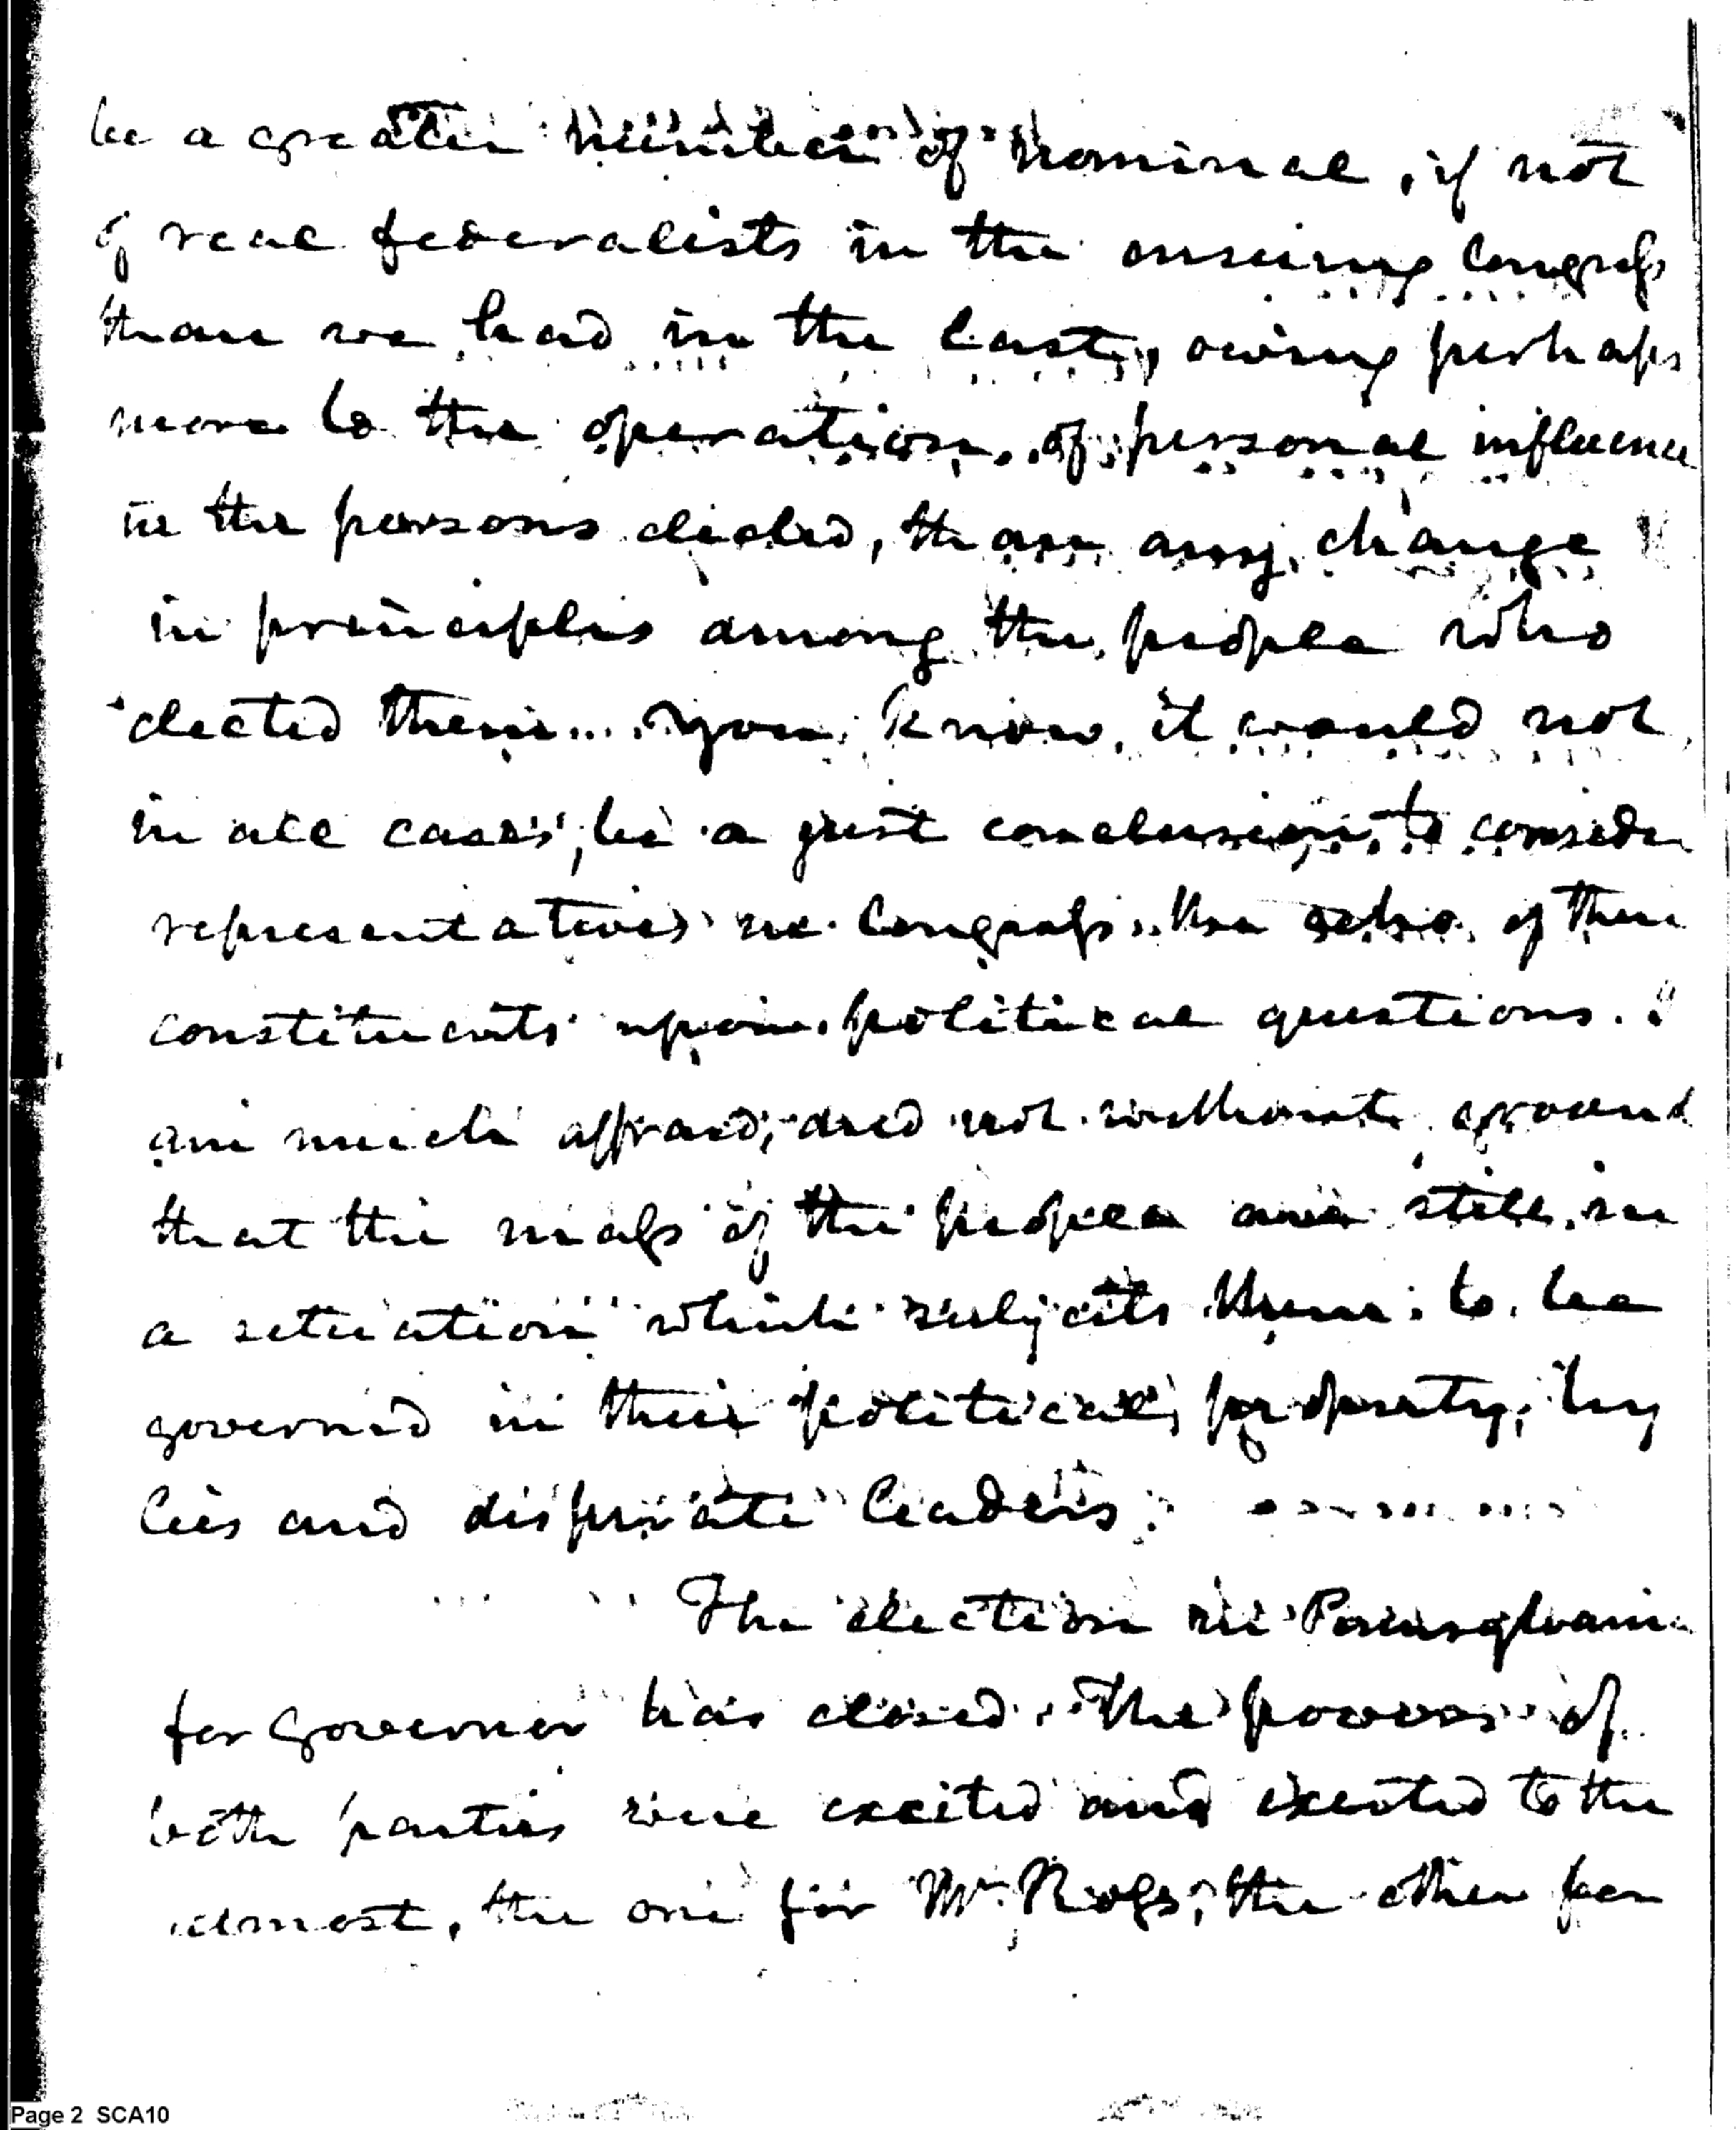 be a greater number of nominal, if not
of real federalists in the ensuing Congress
than we had in the last, owing perhaps
more to the operation of personal influence
in the persons elected, than any change
in principles among the people who
elected them... you know it would not
in all cases, be a just conclusion to consider
representatives in Congress the echo of their
constituents upon political questions. I
am much affraid, and not without ground
that the mass of the people are still in
a situation which subjects them to be
governed in their political property, by
lies and desperate leaders.
The election in Pennsylvania
for Governer has closed. The powers of
both parties were excited and exerted to the
utmost, the one for Mr. Ross, the other for
Page 2 SCA10